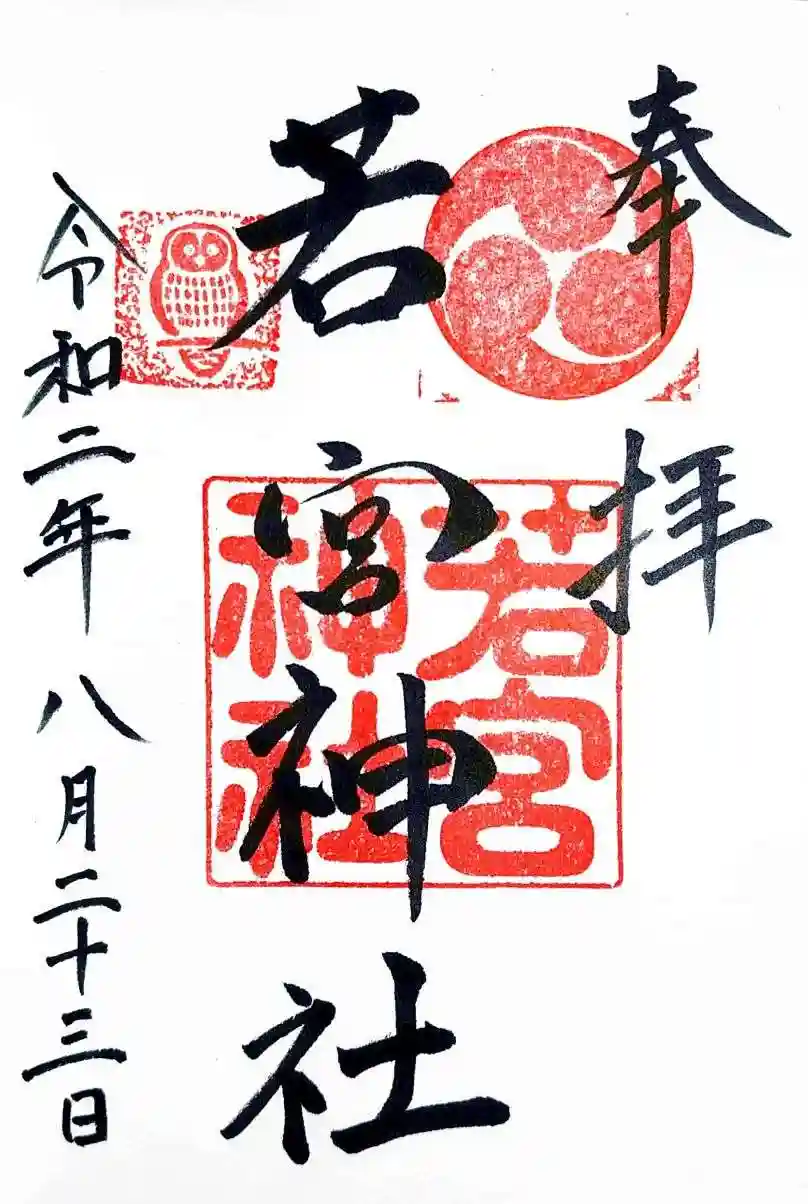 奉拝
若宮神社
若宮
神社
令和二年八月二十三日